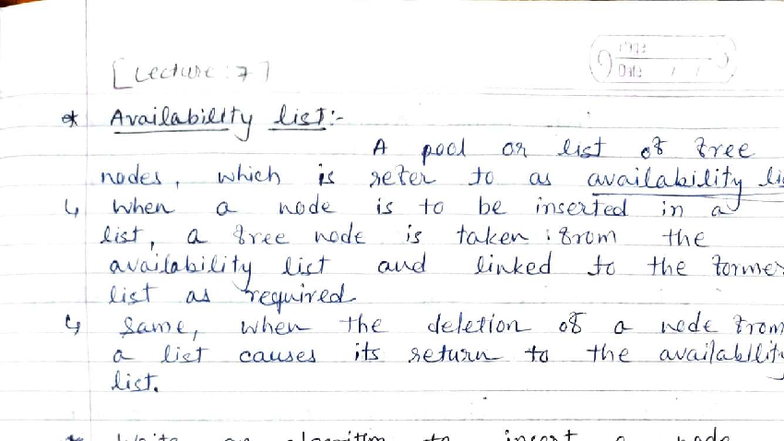 [Lecture : 7]
Date / /
* Availability list:-
A pool or list of free
nodes, which is refer to as availability li
↳ When a node is to be inserted in a
list, a free node is taken from the
availability list and linked to the former
list as required
↳ Same, when the deletion of a node from
a list causes its return to the availability
list.
* Write an algorithm to insert a node